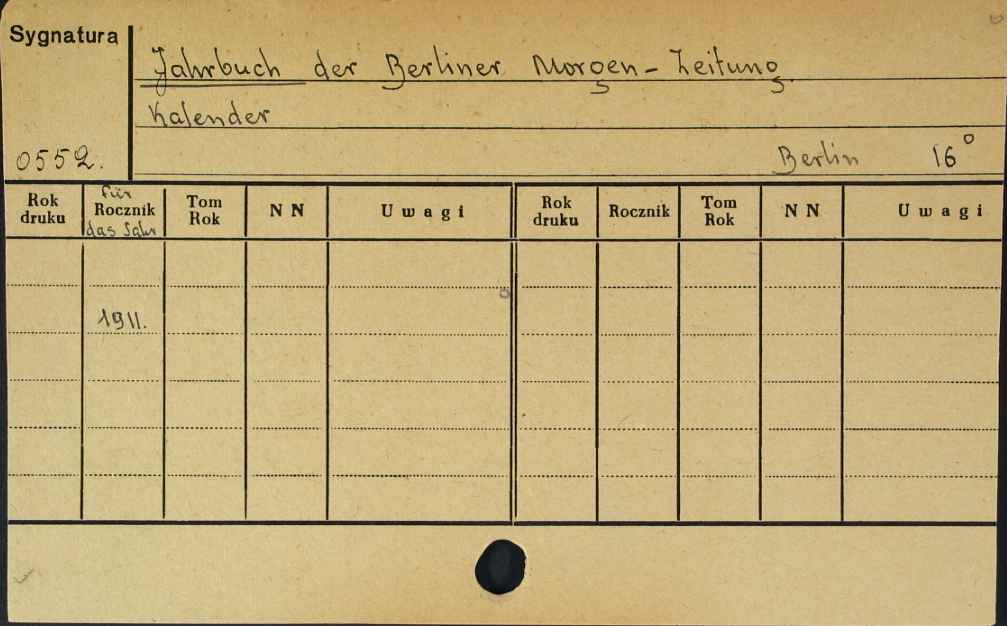 Sygnatura
Jahrbuch der Berliner Morgen-Zeitung
Kalender
0552. Berlin 16°
für
Rok druku Rocznik Tom Rok NN Uwagi Rok druku Rocznik Tom Rok NN Uwagi
das Jahr
1911.